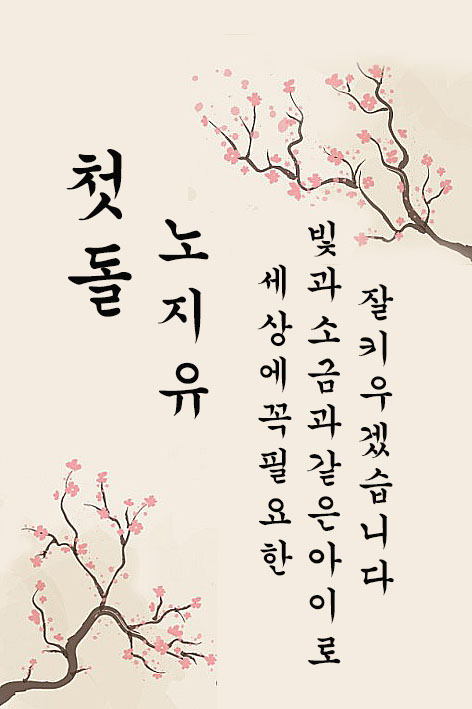 첫돌
노지유
세상에꼭필요한
빛과소금과같은아이로
잘키우겠습니다